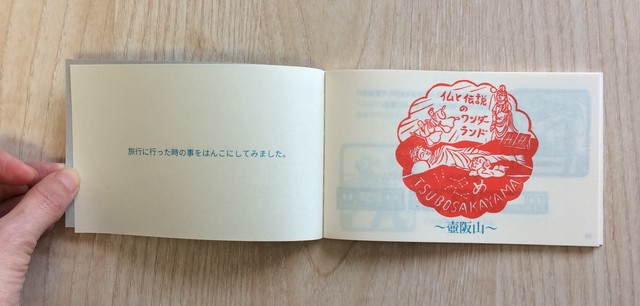 旅行に行った時の事をはんこにしてみました。
仏と伝説
の
ワンダー
ランド
め
TSUBOSAKAYAMA
～壺阪山～